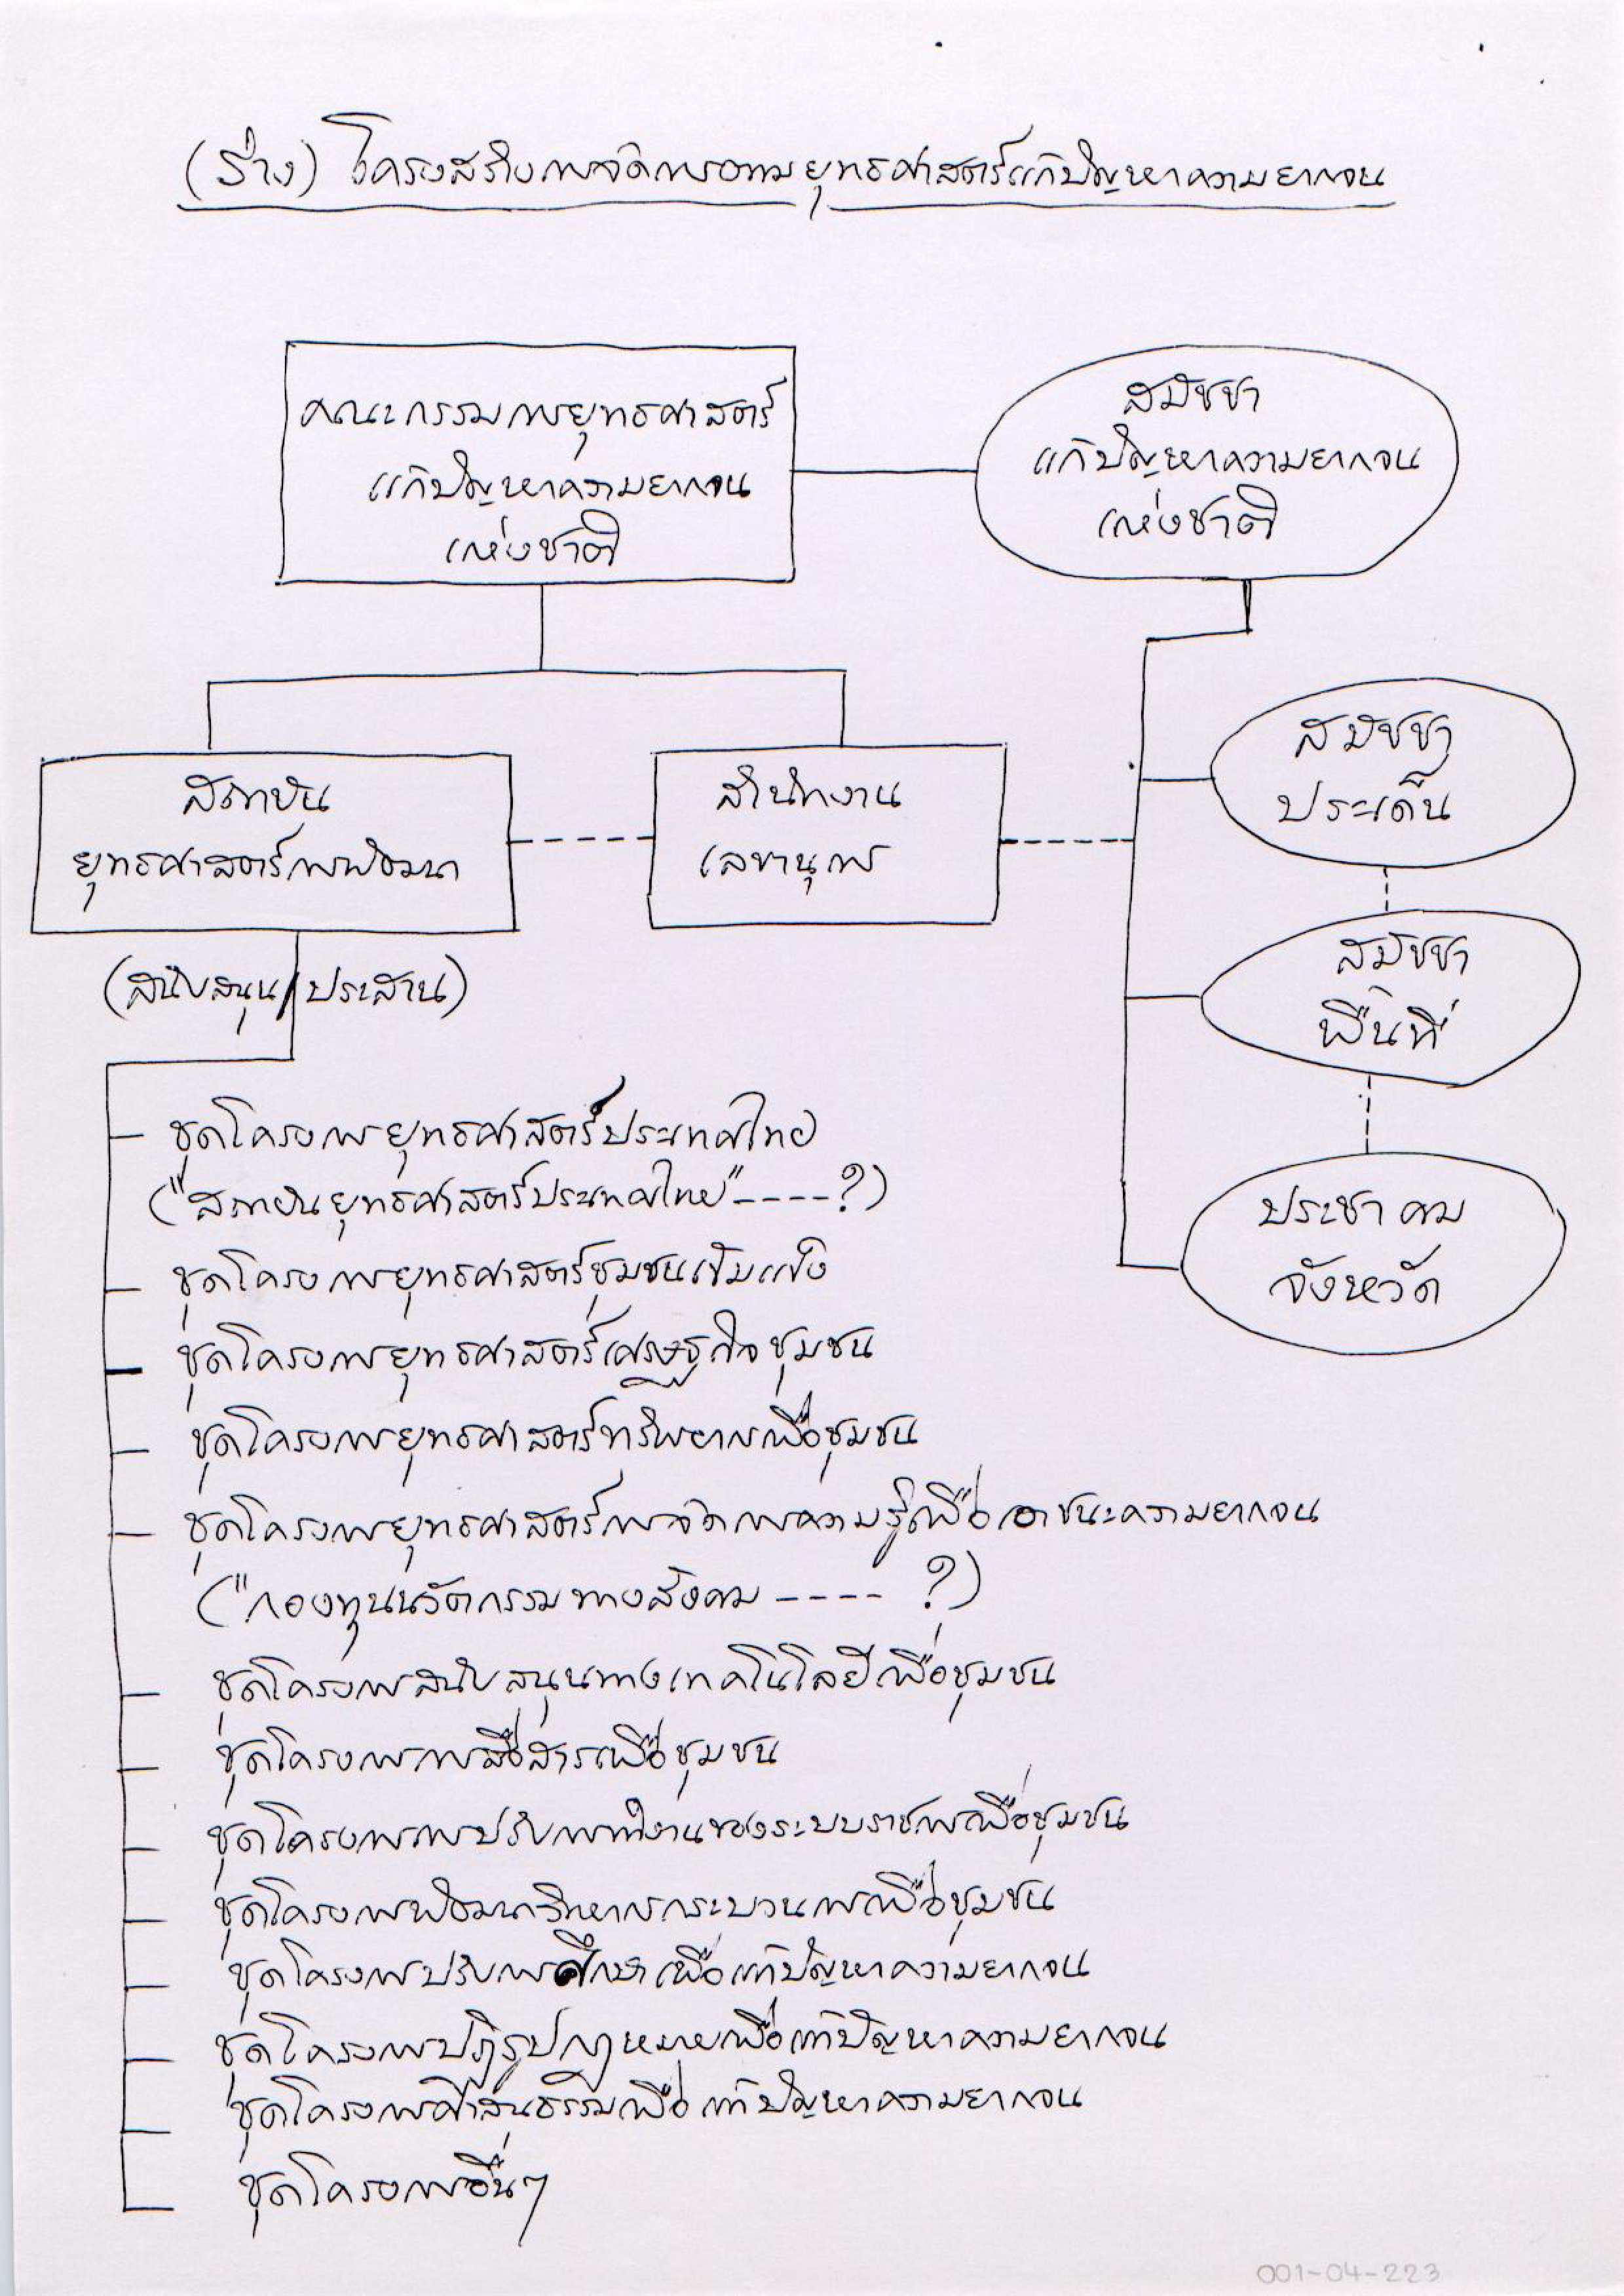 (ร่าง) โครงสร้างการจัดการตามยุทธศาสตร์แก้ปัญหาความยากจน
คณะกรรมการยุทธศาสตร์
แก้ปัญหาความยากจน
แห่งชาติ
สมัชชา
แก้ปัญหาความยากจน
แห่งชาติ
สถาบัน
ยุทธศาสตร์การพัฒนา
สำนักงาน
เลขานุการ
สมัชชา
ประเด็น
สมัชชา
พื้นที่
ประชาคม
จังหวัด
(สนับสนุน/ประสาน)
ชุดโครงการยุทธศาสตร์ประเทศไทย
("สถาบันยุทธศาสตร์ประเทศไทย"----?)
ชุดโครงการยุทธศาสตร์ชุมชนเข้มแข็ง
ชุดโครงการยุทธศาสตร์เศรษฐกิจชุมชน
ชุดโครงการยุทธศาสตร์ทรัพยากรเพื่อชุมชน
ชุดโครงการยุทธศาสตร์การจัดการความรู้เพื่อเอาชนะความยากจน
("กองทุนนวัตกรรมทางสังคม ---- ?)
ชุดโครงการสนับสนุนทางเทคโนโลยีเพื่อชุมชน
ชุดโครงการการสื่อสารเพื่อชุมชน
ชุดโครงการการปรับการทำงานของระบบราชการเพื่อชุมชน
ชุดโครงการพัฒนาวิทยากรกระบวนการเพื่อชุมชน
ชุดโครงการปรับการศึกษาเพื่อแก้ปัญหาความยากจน
ชุดโครงการปฏิรูปกฎหมายเพื่อแก้ปัญหาความยากจน
ชุดโครงการศาสนธรรมเพื่อแก้ปัญหาความยากจน
ชุดโครงการอื่นๆ
001-04-223